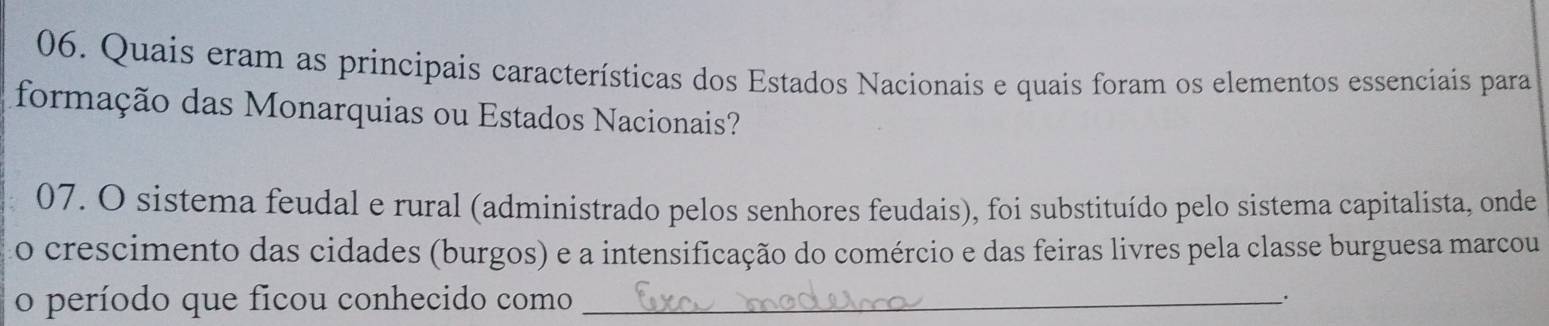 06. Quais eram as principais características dos Estados Nacionais e quais foram os elementos essenciais para
formação das Monarquias ou Estados Nacionais?
07. O sistema feudal e rural (administrado pelos senhores feudais), foi substituído pelo sistema capitalista, onde
o crescimento das cidades (burgos) e a intensificação do comércio e das feiras livres pela classe burguesa marcou
o período que ficou conhecido como Exa moderna.